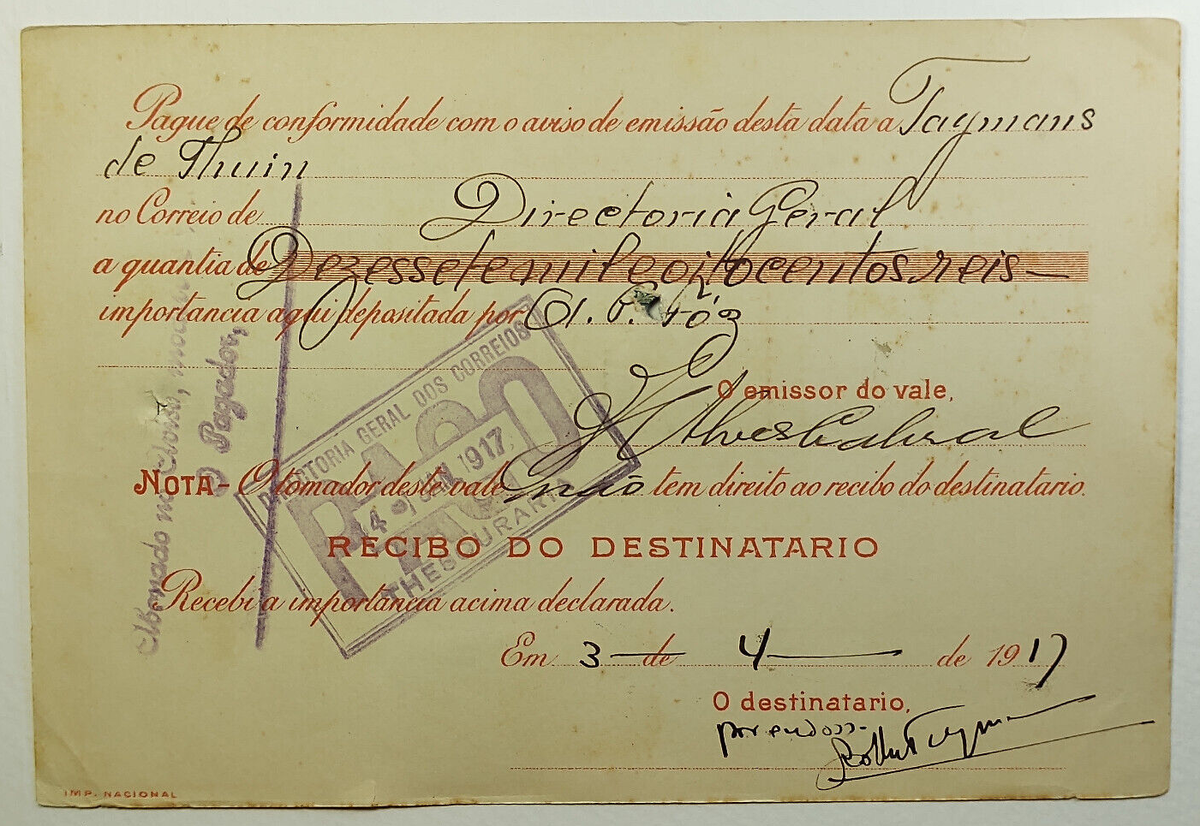 Pague de conformidade com o aviso de emissão desta data a Taymans
de Thuin
no Correio de Directoria Geral
a quantia de Dezessete mil e oitocentos reis
importancia aqui depositada por
O emissor do vale,
Alves Cabral
NOTA - O tomador deste vale não tem direito ao recibo do destinatario.
RECIBO DO DESTINATARIO
Recebi a importancia acima declarada.
Em 3 de 4 de 1917
O destinatario,
por
DIRECTORIA GERAL DOS CORREIOS
PAGO
1917
THESOURARIA
Abonado na
O Pagador,
IMP. NACIONAL